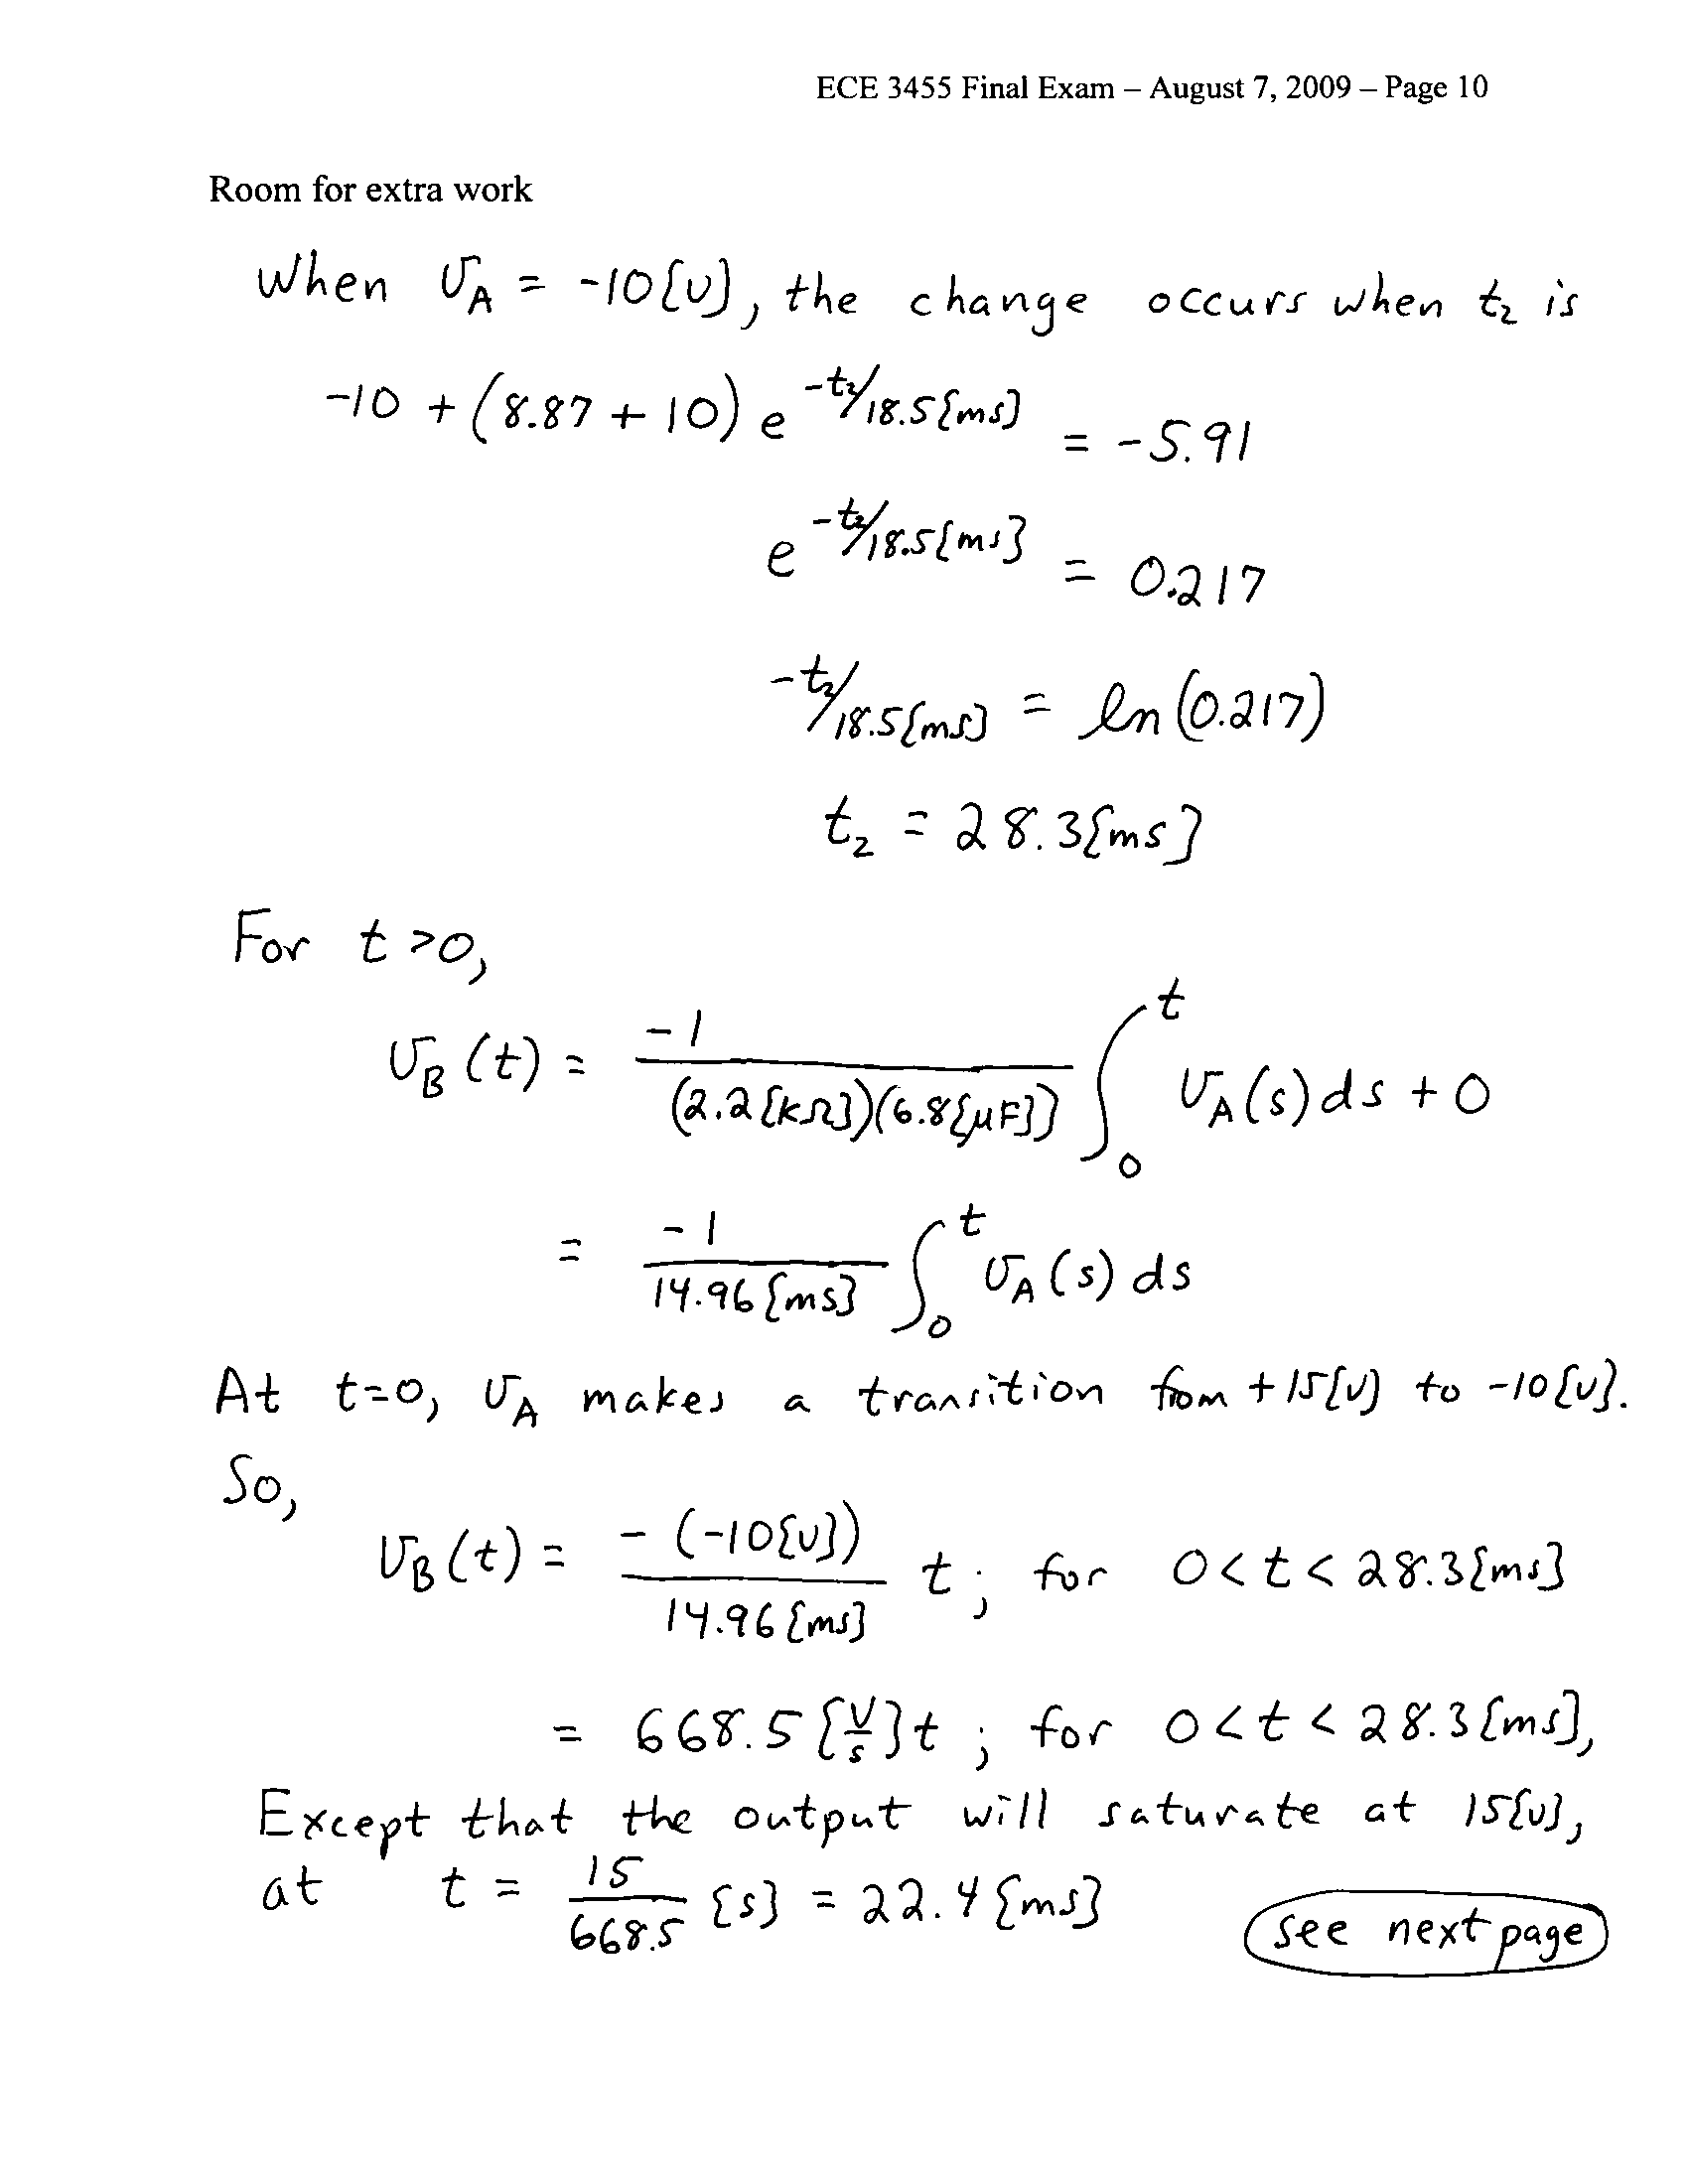 ECE 3455 Final Exam – August 7, 2009 – Page 10
Room for extra work
When v_A = -10{v}, the change occurs when t₂ is
-10 + (8.87 + 10) e^(-t₂/18.5{ms}) = -5.91
e^(-t₂/18.5{ms}) = 0.217
-t₂/18.5{ms} = ln(0.217)
t₂ = 28.3{ms}
For t > 0,
v_B(t) = -1/((2.2{kΩ})(6.8{μF})) ∫₀^t v_A(s)ds + 0
= -1/14.96{ms} ∫₀^t v_A(s)ds
At t=0, v_A makes a transition from +15{v} to -10{v}.
So,
v_B(t) = -(-10{v})/14.96{ms} t; for 0<t<28.3{ms}
= 668.5{V/s}t; for 0<t<28.3{ms},
Except that the output will saturate at 15{v},
at t = 15/668.5 {s} = 22.4{ms}
see next page